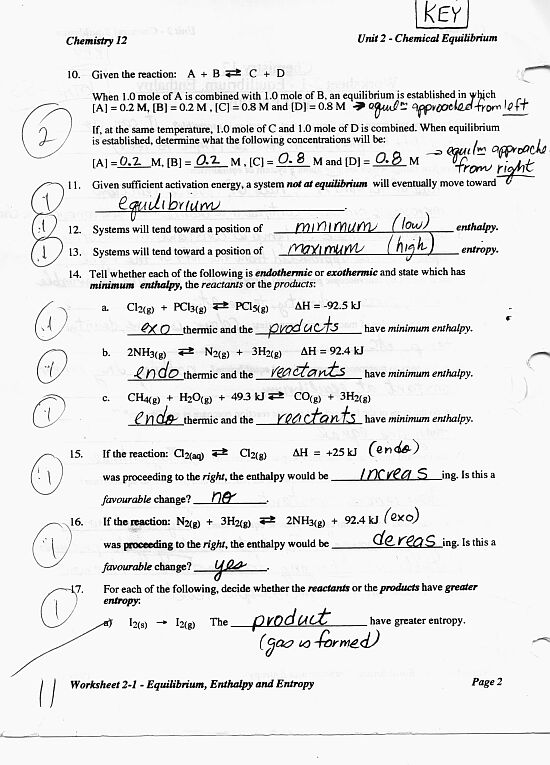 KEY
Chemistry 12
Unit 2 - Chemical Equilibrium
10. Given the reaction: A + B ⇄ C + D
When 1.0 mole of A is combined with 1.0 mole of B, an equilibrium is established in which
[A] = 0.2 M, [B] = 0.2 M , [C] = 0.8 M and [D] = 0.8 M → equilm approached from left
2
If, at the same temperature, 1.0 mole of C and 1.0 mole of D is combined. When equilibrium
is established, determine what the following concentrations will be:
[A] = 0.2 M, [B] = 0.2 M , [C] = 0.8 M and [D] = 0.8 M → equilm approache
from right
11. Given sufficient activation energy, a system not at equilibrium will eventually move toward
1
equilibrium.
1
12. Systems will tend toward a position of minimum (low) enthalpy.
1
13. Systems will tend toward a position of maximum (high) entropy.
14. Tell whether each of the following is endothermic or exothermic and state which has
minimum enthalpy, the reactants or the products:
a. Cl2(g) + PCl3(g) ⇄ PCl5(g) ΔH = -92.5 kJ
1
exo thermic and the products have minimum enthalpy.
b. 2NH3(g) ⇄ N2(g) + 3H2(g) ΔH = 92.4 kJ
1
endo thermic and the reactants have minimum enthalpy.
c. CH4(g) + H2O(g) + 49.3 kJ ⇄ CO(g) + 3H2(g)
1
endo thermic and the reactants have minimum enthalpy.
15. If the reaction: Cl2(aq) ⇄ Cl2(g) ΔH = +25 kJ (endo)
1
was proceeding to the right, the enthalpy would be increas ing. Is this a
favourable change? no .
16. If the reaction: N2(g) + 3H2(g) ⇄ 2NH3(g) + 92.4 kJ (exo)
1
was proceeding to the right, the enthalpy would be dereas ing. Is this a
favourable change? yes .
17. For each of the following, decide whether the reactants or the products have greater
entropy:
1
a) I2(s) → I2(g) The product have greater entropy.
(gas is formed)
11
Worksheet 2-1 - Equilibrium, Enthalpy and Entropy
Page 2